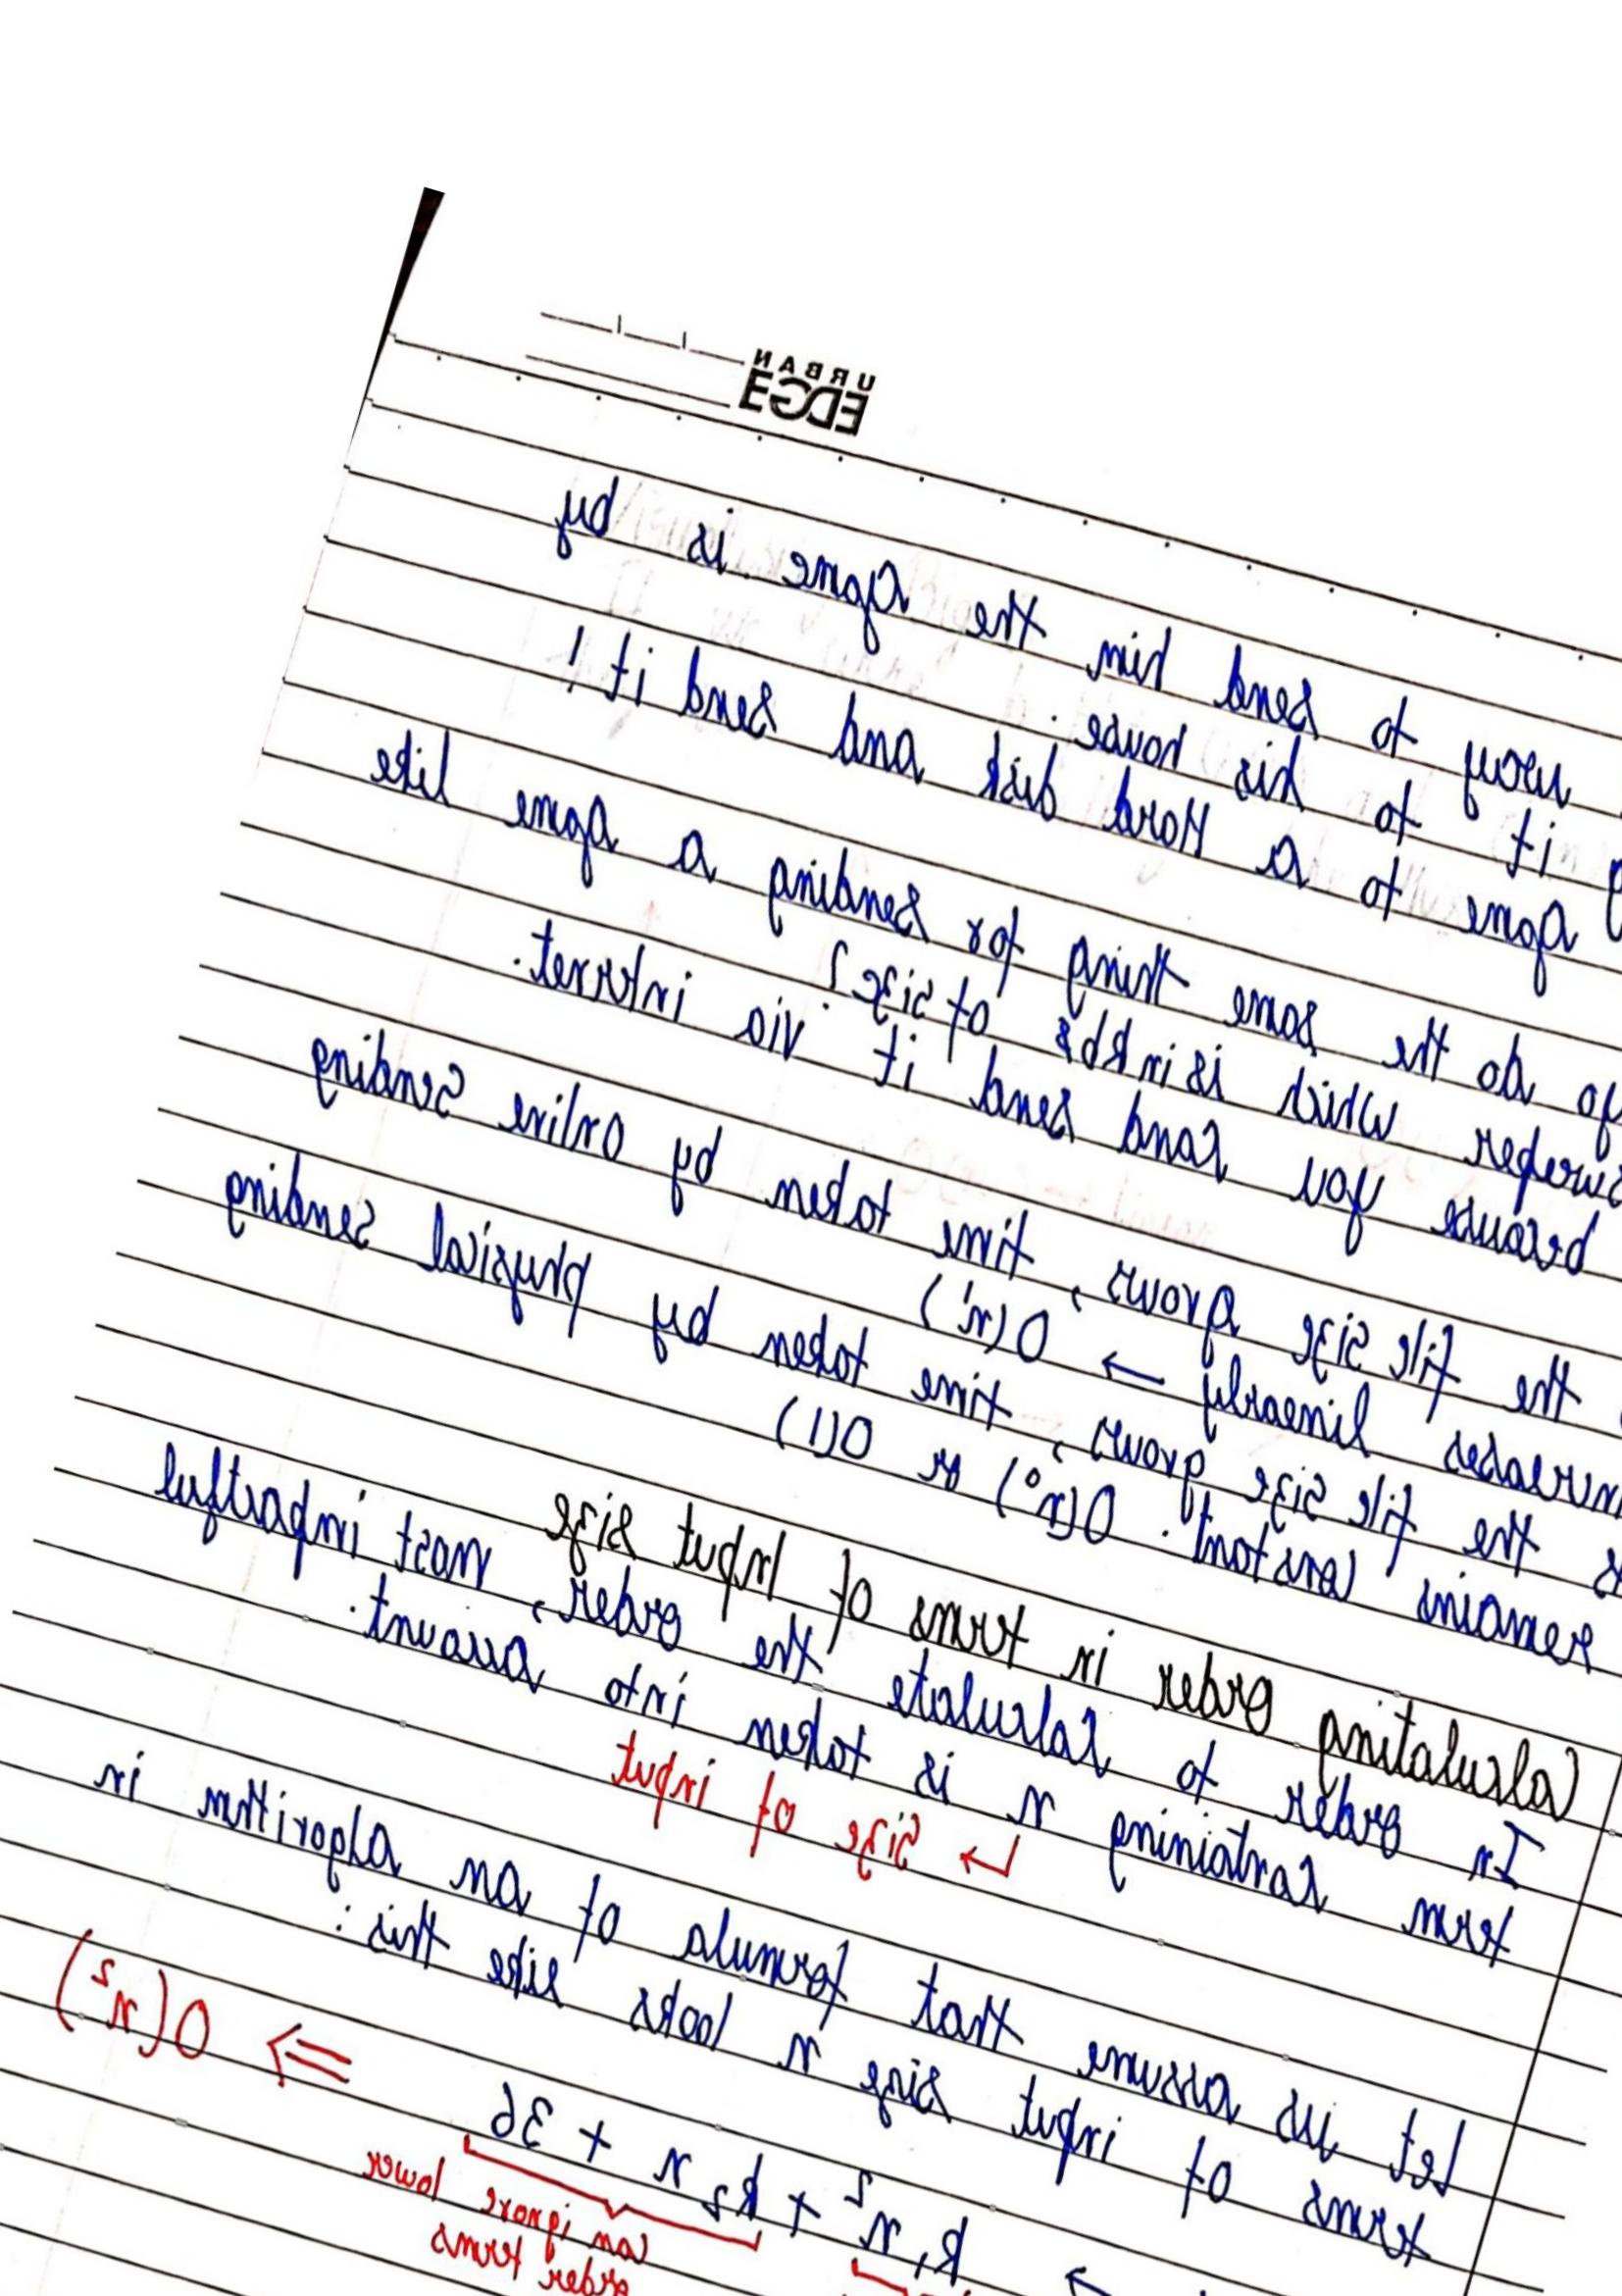 URBAN
EDGE
way to send him the game is by
it to his house.
game to a Hard disk and send it!
do the same thing for sending a game like
which is in kbs of size?
because you can send it via internet.
the file size grows, time taken by online sending
increases linearly → O(n¹)
the file size grows, time taken by physical sending
remains constant. O(n⁰) or O(1)
Calculating Order in terms of Input size
In order to calculate the order, most impactful
term containing n is taken into account.
↳ Size of input
Let us assume that formula of an algorithm in
terms of input size n looks like this:
k₁n² + k₂n + 36 ⇒ O(n²)
can ignore lower
order terms